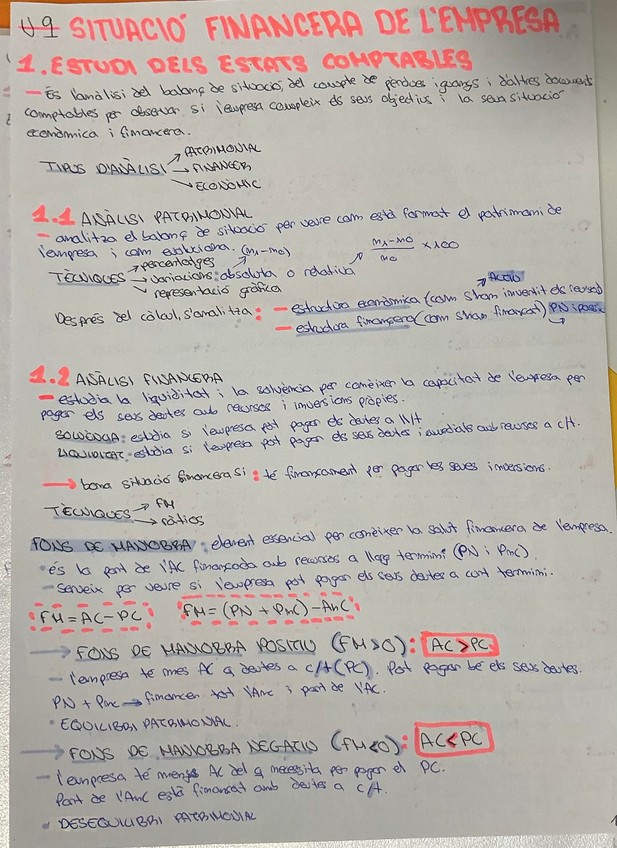 U9 SITUACIÓ FINANCERA DE L'EMPRESA
1. ESTUDI DELS ESTATS COMPTABLES
— És l'anàlisi del balanç de situació, del compte de pèrdues i guanys i d'altres documents
comptables per observar si l'empresa compleix els seus objectius i la seva situació
econòmica i financera.
TIPUS D'ANÀLISI → PATRIMONIAL
→ FINANCER
→ ECONÒMIC
1.1 ANÀLISI PATRIMONIAL
— analitza el balanç de situació per veure com està format el patrimoni de
l'empresa i com evoluciona. (M1-M0)
TÈCNIQUES → percentatges
→ variacions: absoluta o relativa → M1-M0 / M0 x100
→ representació gràfica
Després del càlcul, s'analitza: — estructura econòmica (com s'han invertit els recursos) → ACTIU
— estructura financera (com s'han finançat) PN i passiu
1.2 ANÀLISI FINANCERA
— estudia la liquiditat i la solvència per conèixer la capacitat de l'empresa per
pagar els seus deutes amb recursos i inversions pròpies.
SOLVÈNCIA: estudia si l'empresa pot pagar els deutes a ll/t
LIQUIDITAT: estudia si l'empresa pot pagar els seus deutes immediats amb recursos a c/t.
→ bona situació financera si: té finançament per pagar les seves inversions.
TÈCNIQUES → FM
→ ràtios
FONS DE MANIOBRA: element essencial per conèixer la salut financera de l'empresa.
• és la part de l'AC finançada amb recursos a llarg termini (PN i PnC).
— Serveix per veure si l'empresa pot pagar els seus deutes a curt termini.
FM = AC - PC FM = (PN + PnC) - AnC
→ FONS DE MANIOBRA POSITIU (FM>0): AC > PC
— l'empresa té mes AC q deutes a c/t (PC). Pot pagar bé els seus deutes.
PN + Pnc → financen tot l'Anc i part de l'AC.
• EQUILIBRI PATRIMONIAL.
→ FONS DE MANIOBRA NEGATIU (FM<0): AC < PC
— l'empresa té menys AC del q necessita per pagar el PC.
Part de l'AnC està finançat amb deutes a c/t.
• DESEQUILIBRI PATRIMONIAL